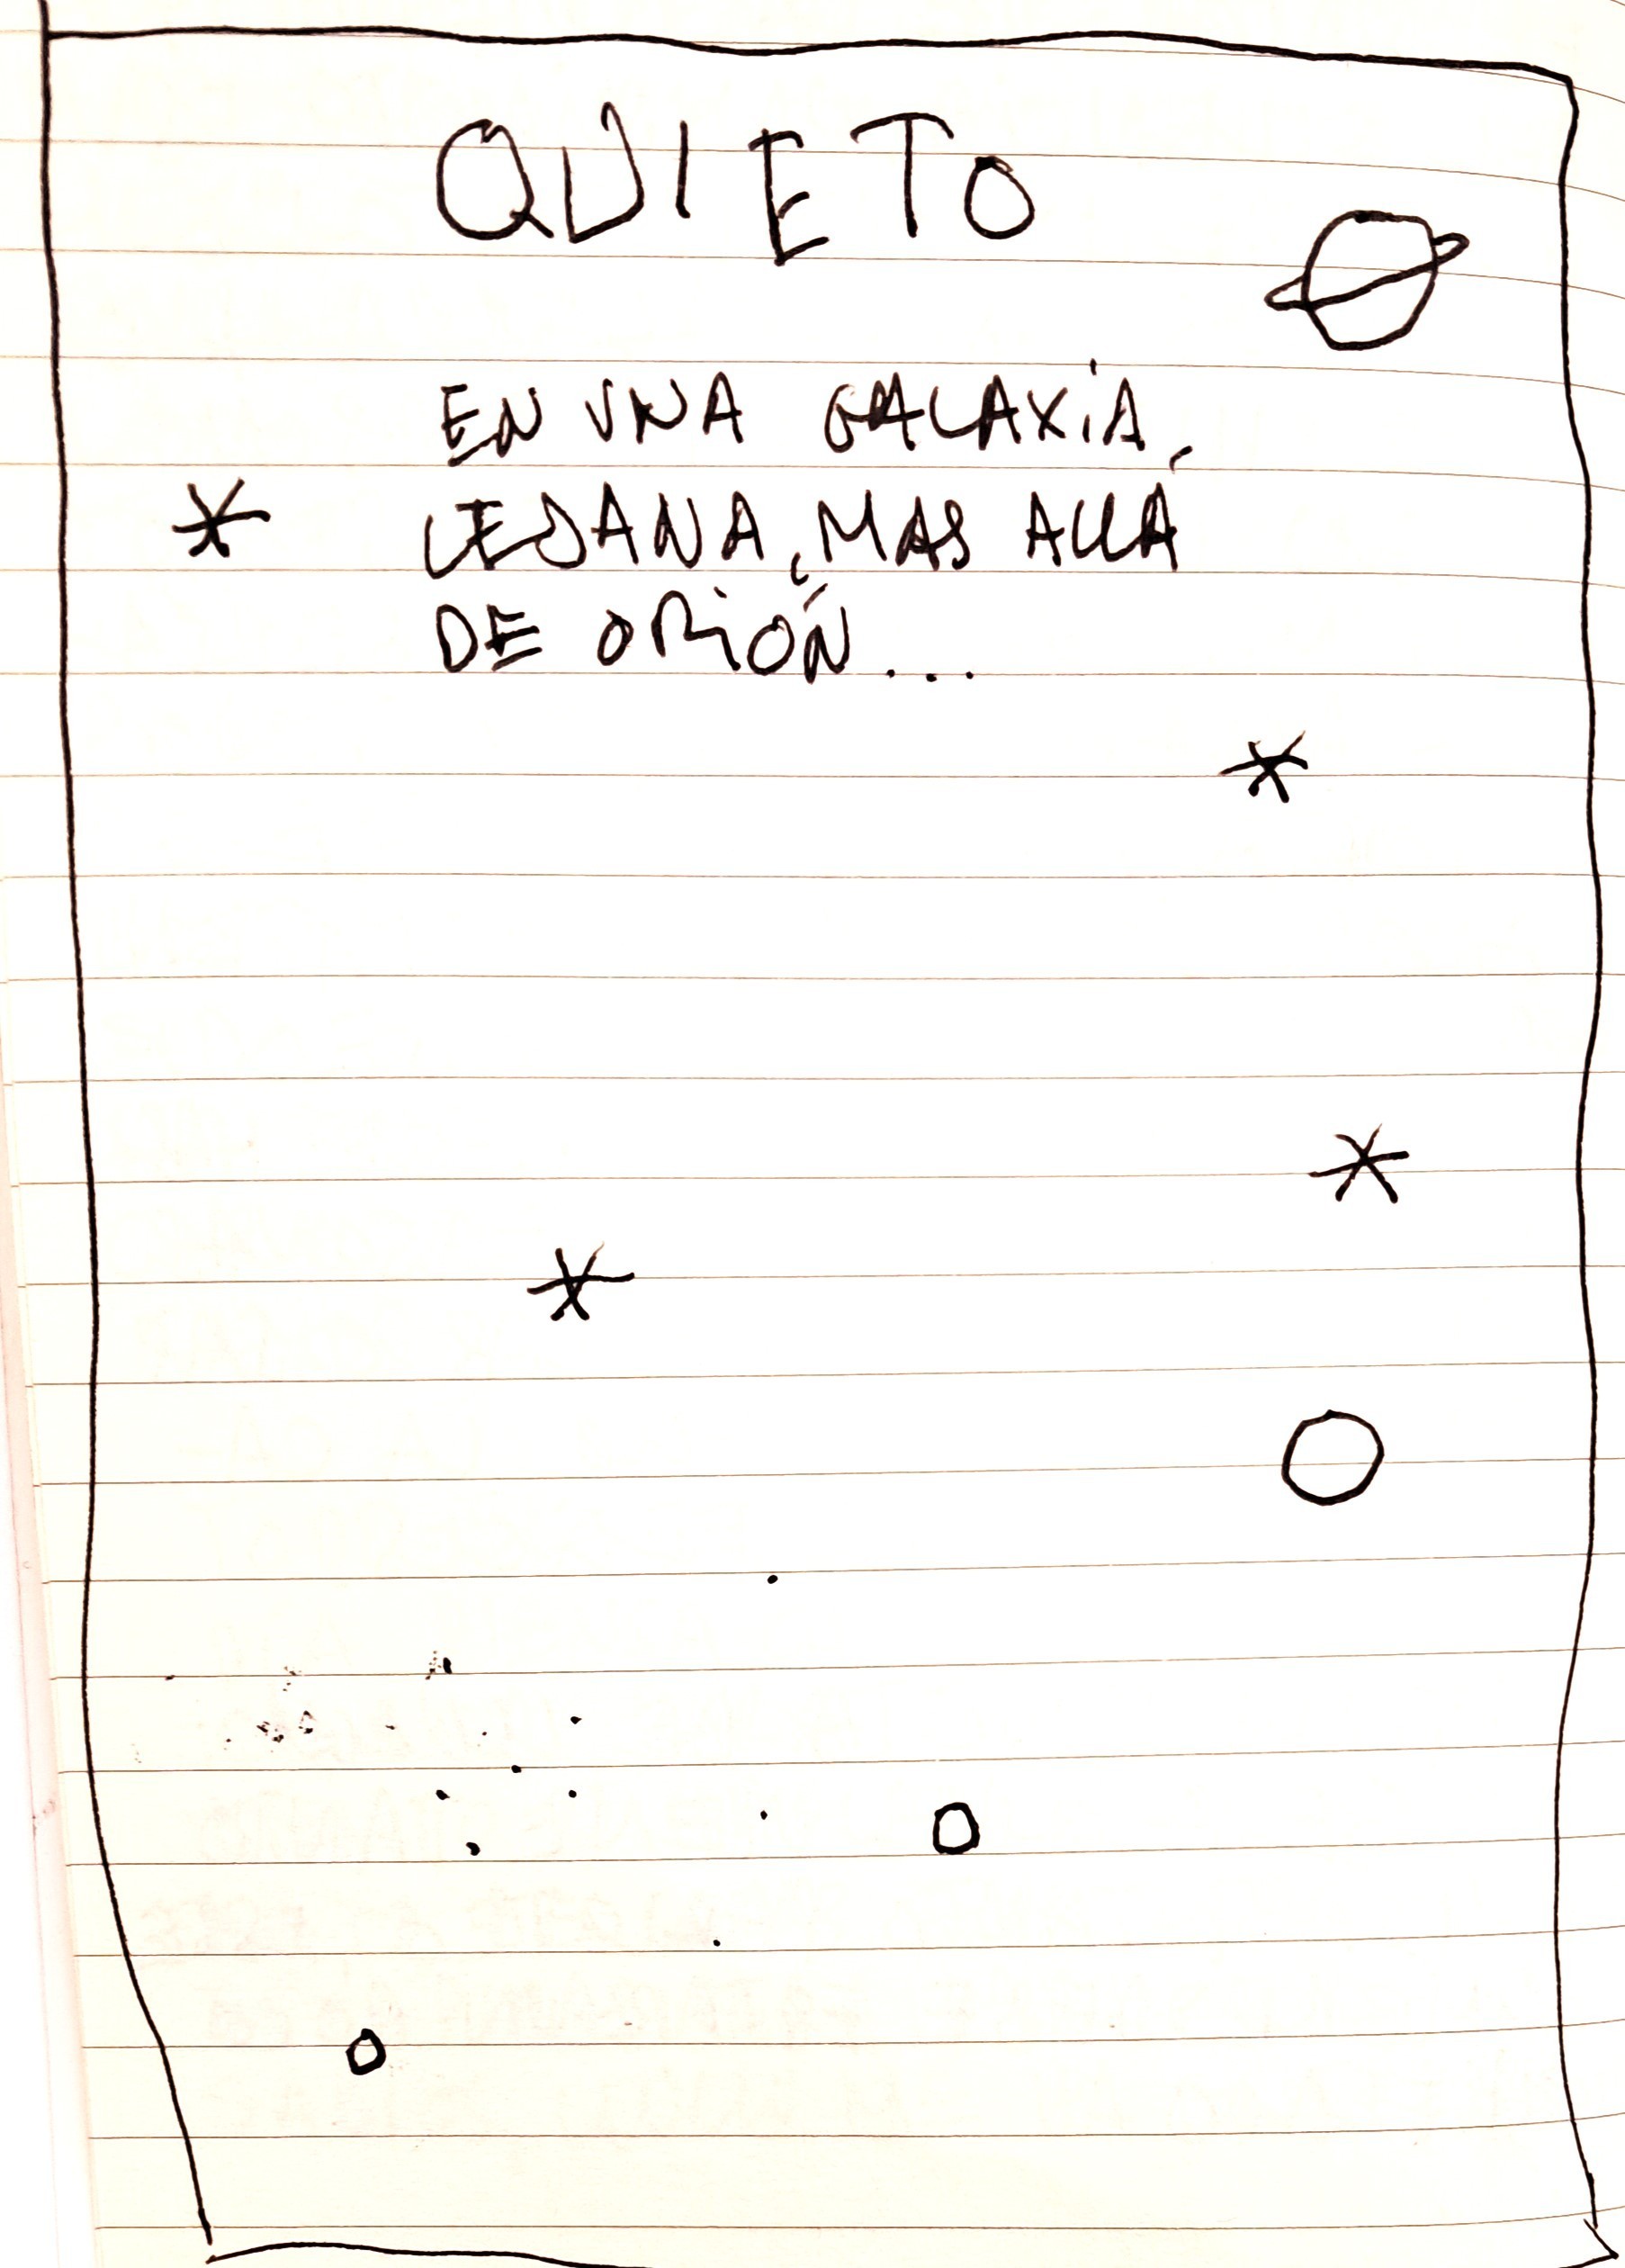 QUIETO
EN UNA GALAXIA,
LEJANA, MAS ALLÁ
DE ORIÓN...